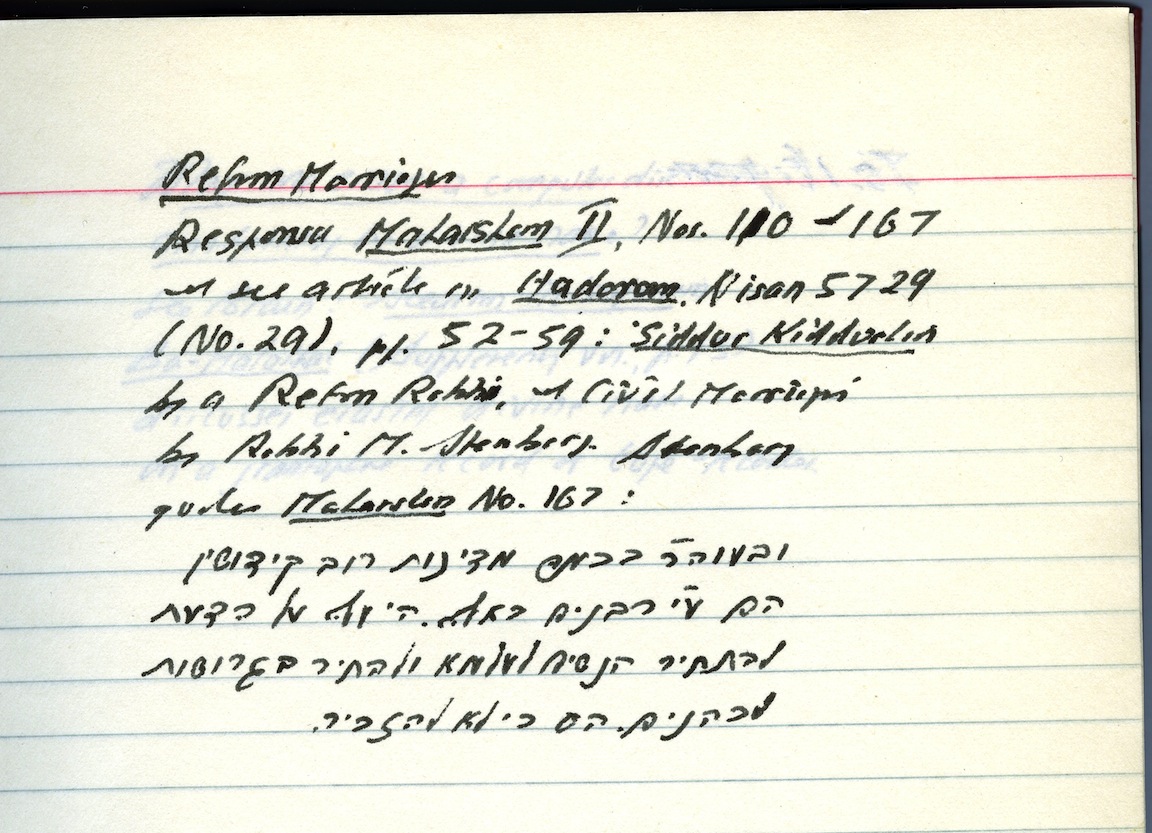 Reform Marriages
Responsa Maharsham II, Nos. 110 & 167
& see article in Hadorom, Nisan 5729
(No. 29), pp. 52-59: "Siddur Kiddushin
by a Reform Rabbi, & Civil Marriages
by Rabbi M. Steinberg.
quotes Maharsham No. 167:
ובעוה״ר בכמה מדינות רוב קידושין
הם ע״י רבנים כאלו. הדעת
להתיר הנשים לעלמא ולהתיר בגרושות
לכהנים. הס כי לא להזכיר.